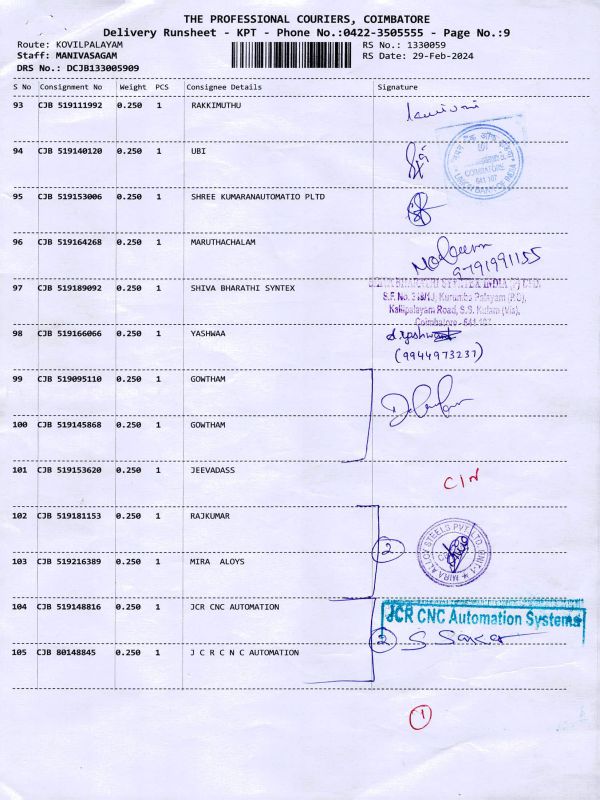 THE PROFESSIONAL COURIERS, COIMBATORE
Delivery Runsheet - KPT - Phone No.:0422-3505555 - Page No.:9
Route: KOVILPALAYAM RS No.: 1330059
Staff: MANIVASAGAM RS Date: 29-Feb-2024
DRS No.: DCJB133005909
S No Consignment No Weight PCS Consignee Details Signature
93 CJB 519111992 0.250 1 RAKKIMUTHU
94 CJB 519140120 0.250 1 UBI
UNION BANK OF INDIA
COIMBATORE
641 107
95 CJB 519153006 0.250 1 SHREE KUMARANAUTOMATIO PLTD
96 CJB 519164268 0.250 1 MARUTHACHALAM
9791991155
97 CJB 519189092 0.250 1 SHIVA BHARATHI SYNTEX
S.F. No. Kurumba Palayam (P.O),
Kalipalayam Road, S.S. Kulam (Via),
Coimbatore - 641 107
98 CJB 519166066 0.250 1 YASHWAA
(9944973237)
99 CJB 519095110 0.250 1 GOWTHAM
100 CJB 519145868 0.250 1 GOWTHAM
101 CJB 519153620 0.250 1 JEEVADASS
C/N
102 CJB 519181153 0.250 1 RAJKUMAR
2
MIRA ALLOY STEELS PVT. LTD. UNIT-I
103 CJB 519216389 0.250 1 MIRA ALOYS
104 CJB 519148816 0.250 1 JCR CNC AUTOMATION
JCR CNC Automation Systems
2
105 CJB 80148845 0.250 1 J C R C N C AUTOMATION
1